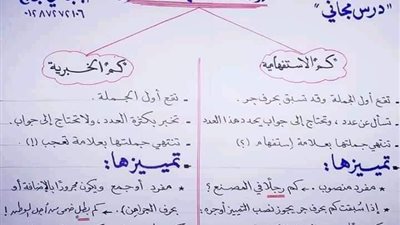 درس مجاني"
٠١٢٨٧٢٧٢١٠٦
"كم" الاستفهامية
"كم" الخبرية
- تقع أول الجملة وقد تسبق بحرف جر.
- تسأل عن عدد، وتحتاج إلى جواب يحدد هذا العدد
- تنتهي جملتها بعلامة استفهام (؟)
- تمييزها:
* مفرد منصوب. ← كم رجلًا في المصنع؟
* إذا سُبقت كم بحرف جر يجوز نصب التمييز أو جره:
- تقع أول الجملة.
- تخبر بكثرة العدد، ولا تحتاج إلى جواب.
- تنتهي جملتها بعلامة تعجب (!)
- تمييزها:
* مفرد أو جمع ويكون مجرورًا بالإضافة أو
بحرف الجر (من). ← كم بطلٍ ضحى من أجل الوطن!